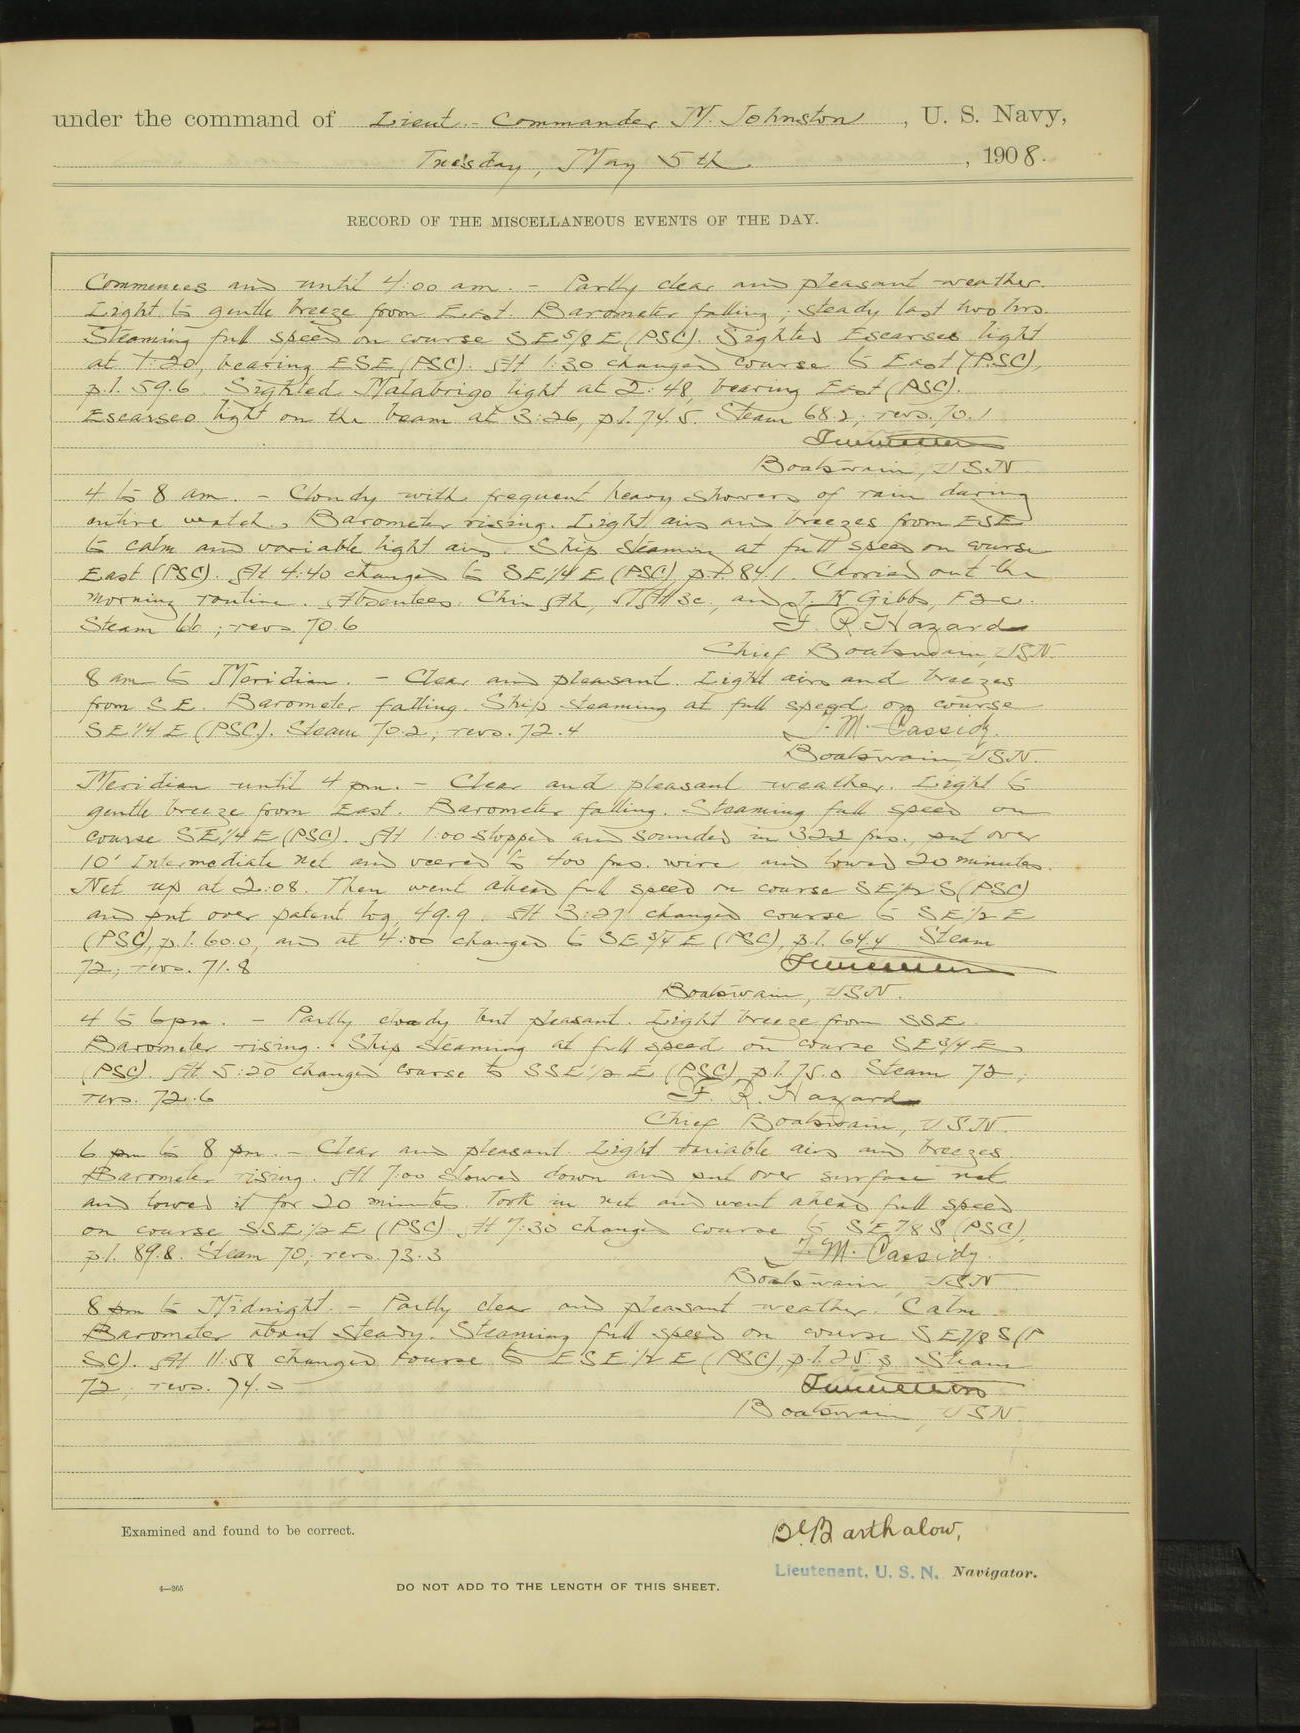 under the command of Lieut.-Commander M. Johnston, U. S. Navy,
Tuesday, May 5th, 1908.
RECORD OF THE MISCELLANEOUS EVENTS OF THE DAY.
Commences and until 4:00 am. - Partly clear and pleasant weather.
Light to gentle breeze from East. Barometer falling; steady last two hrs.
Steaming full speed on course SE 5/8 E (PSC). Sighted Escarseo light
at 1:20, bearing ESE (PSC). At 1:30 changed course to East (PSC),
p.l. 59.6. Sighted Malabrigo light at 2:48, bearing East (PSC).
Escarseo light on the beam at 3:26, p.l. 74.5. Steam 68.2; revs. 70.1
Boatswain, USN.
4 to 8 am. - Cloudy with frequent heavy showers of rain during
entire watch. Barometer rising. Light airs and breezes from ESE
to calm and variable light airs. Ship steaming at full speed on course
East (PSC). At 4:40 changed to SE 1/4 E (PSC) p.l. 84.1. Carried out the
morning routine. Absentees. Chin Ah, MAtt3c, and J. W Gibbs, F2c.
Steam 66; revs 70.6
F. R. Hazard
Chief Boatswain, USN.
8 am to Meridian. - Clear and pleasant. Light airs and breezes
from SE. Barometer falling. Ship steaming at full speed on course
SE 1/4 E (PSC). Steam 70.2; revs. 72.4
F. M. Cassidy.
Boatswain USN.
Meridian until 4 pm. - Clear and pleasant weather. Light to
gentle breeze from East. Barometer falling. Steaming full speed on
course SE 1/4 E (PSC). At 1:00 stopped and sounded in 322 fms., put over
10' Intermediate net and veered to 400 fms. wire and towed 20 minutes.
Net up at 2:08. Then went ahead full speed on course SE 1/2 S (PSC)
and put over patent log, 49.9. At 3:27 changed course to SE 1/2 E
(PSC), p.l. 60.0, and at 4:00 changed to SE 3/4 E (PSC), p.l. 64.4 Steam
72; revs. 71.8
Boatswain, USN.
4 to 6 pm. - Partly cloudy but pleasant. Light breeze from SSE.
Barometer rising. Ship steaming at full speed on course SE 3/4 E
(PSC). At 5:20 changed course to SSE 1/2 E (PSC) p.l. 75.0 Steam 72;
revs. 72.6
F. R. Hazard
Chief Boatswain, USN.
6 pm to 8 pm. - Clear and pleasant. Light variable airs and breezes.
Barometer rising. At 7:00 slowed down and put over surface net
and towed it for 20 minutes. Took in net and went ahead full speed
on course SSE 1/2 E (PSC). At 7:30 changed course to SE 7/8 S (PSC),
p.l. 89.8. Steam 70; revs. 73.3
F. M. Cassidy.
Boatswain USN
8 pm to Midnight. - Partly clear and pleasant weather. Calm.
Barometer about steady. Steaming full speed on course SE 7/8 S (P
SC). At 11:58 changed course to ESE 1/2 E (PSC), p.l. 25.3 Steam
72; revs. 74.0
Boatswain, USN.
Examined and found to be correct.
Barthalow,
Lieutenant, U. S. N. Navigator.
4—265
DO NOT ADD TO THE LENGTH OF THIS SHEET.